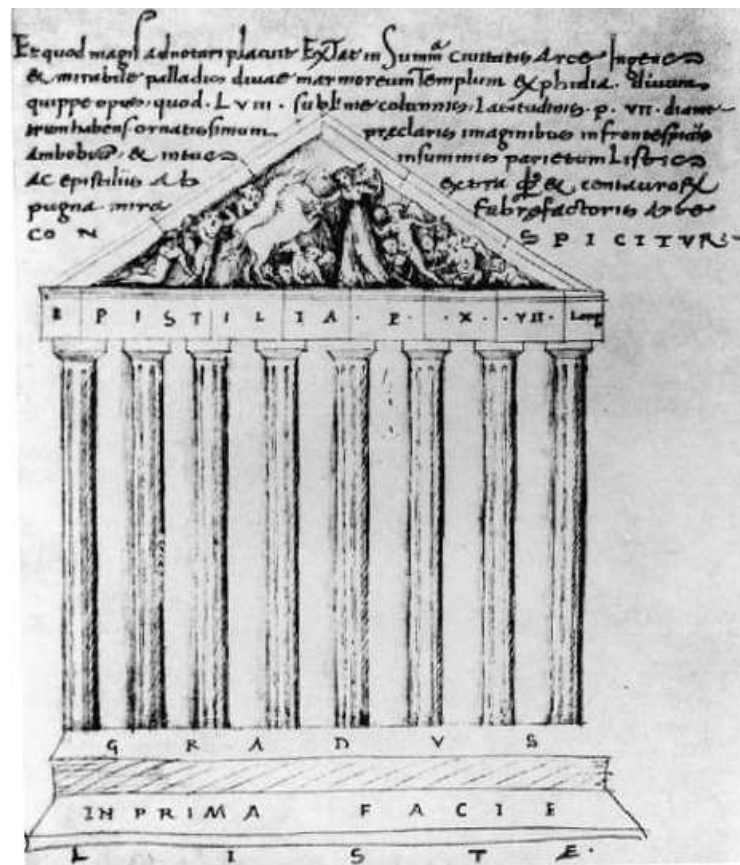 Et quod magis adnotari placuit Extat in Summa civitatis Arce Ingens
& mirabile palladis divae marmoreum Templum phidiae. divum
quippe opus. quod. LVIII. sublime columnis. Latitudinis. p. VII. diame
trum habens ornatissimum praeclaris imaginibus in frontespiciis
Ambobus. & intus in summis parietum Listis
AC epistiliis Ab extra & centauror
pugna mira Fabrefactoris Arte
CON SPICITVR
EPISTILIA. P. X. VII. Long
GRADVS
IN PRIMA FACIE
LISTE.